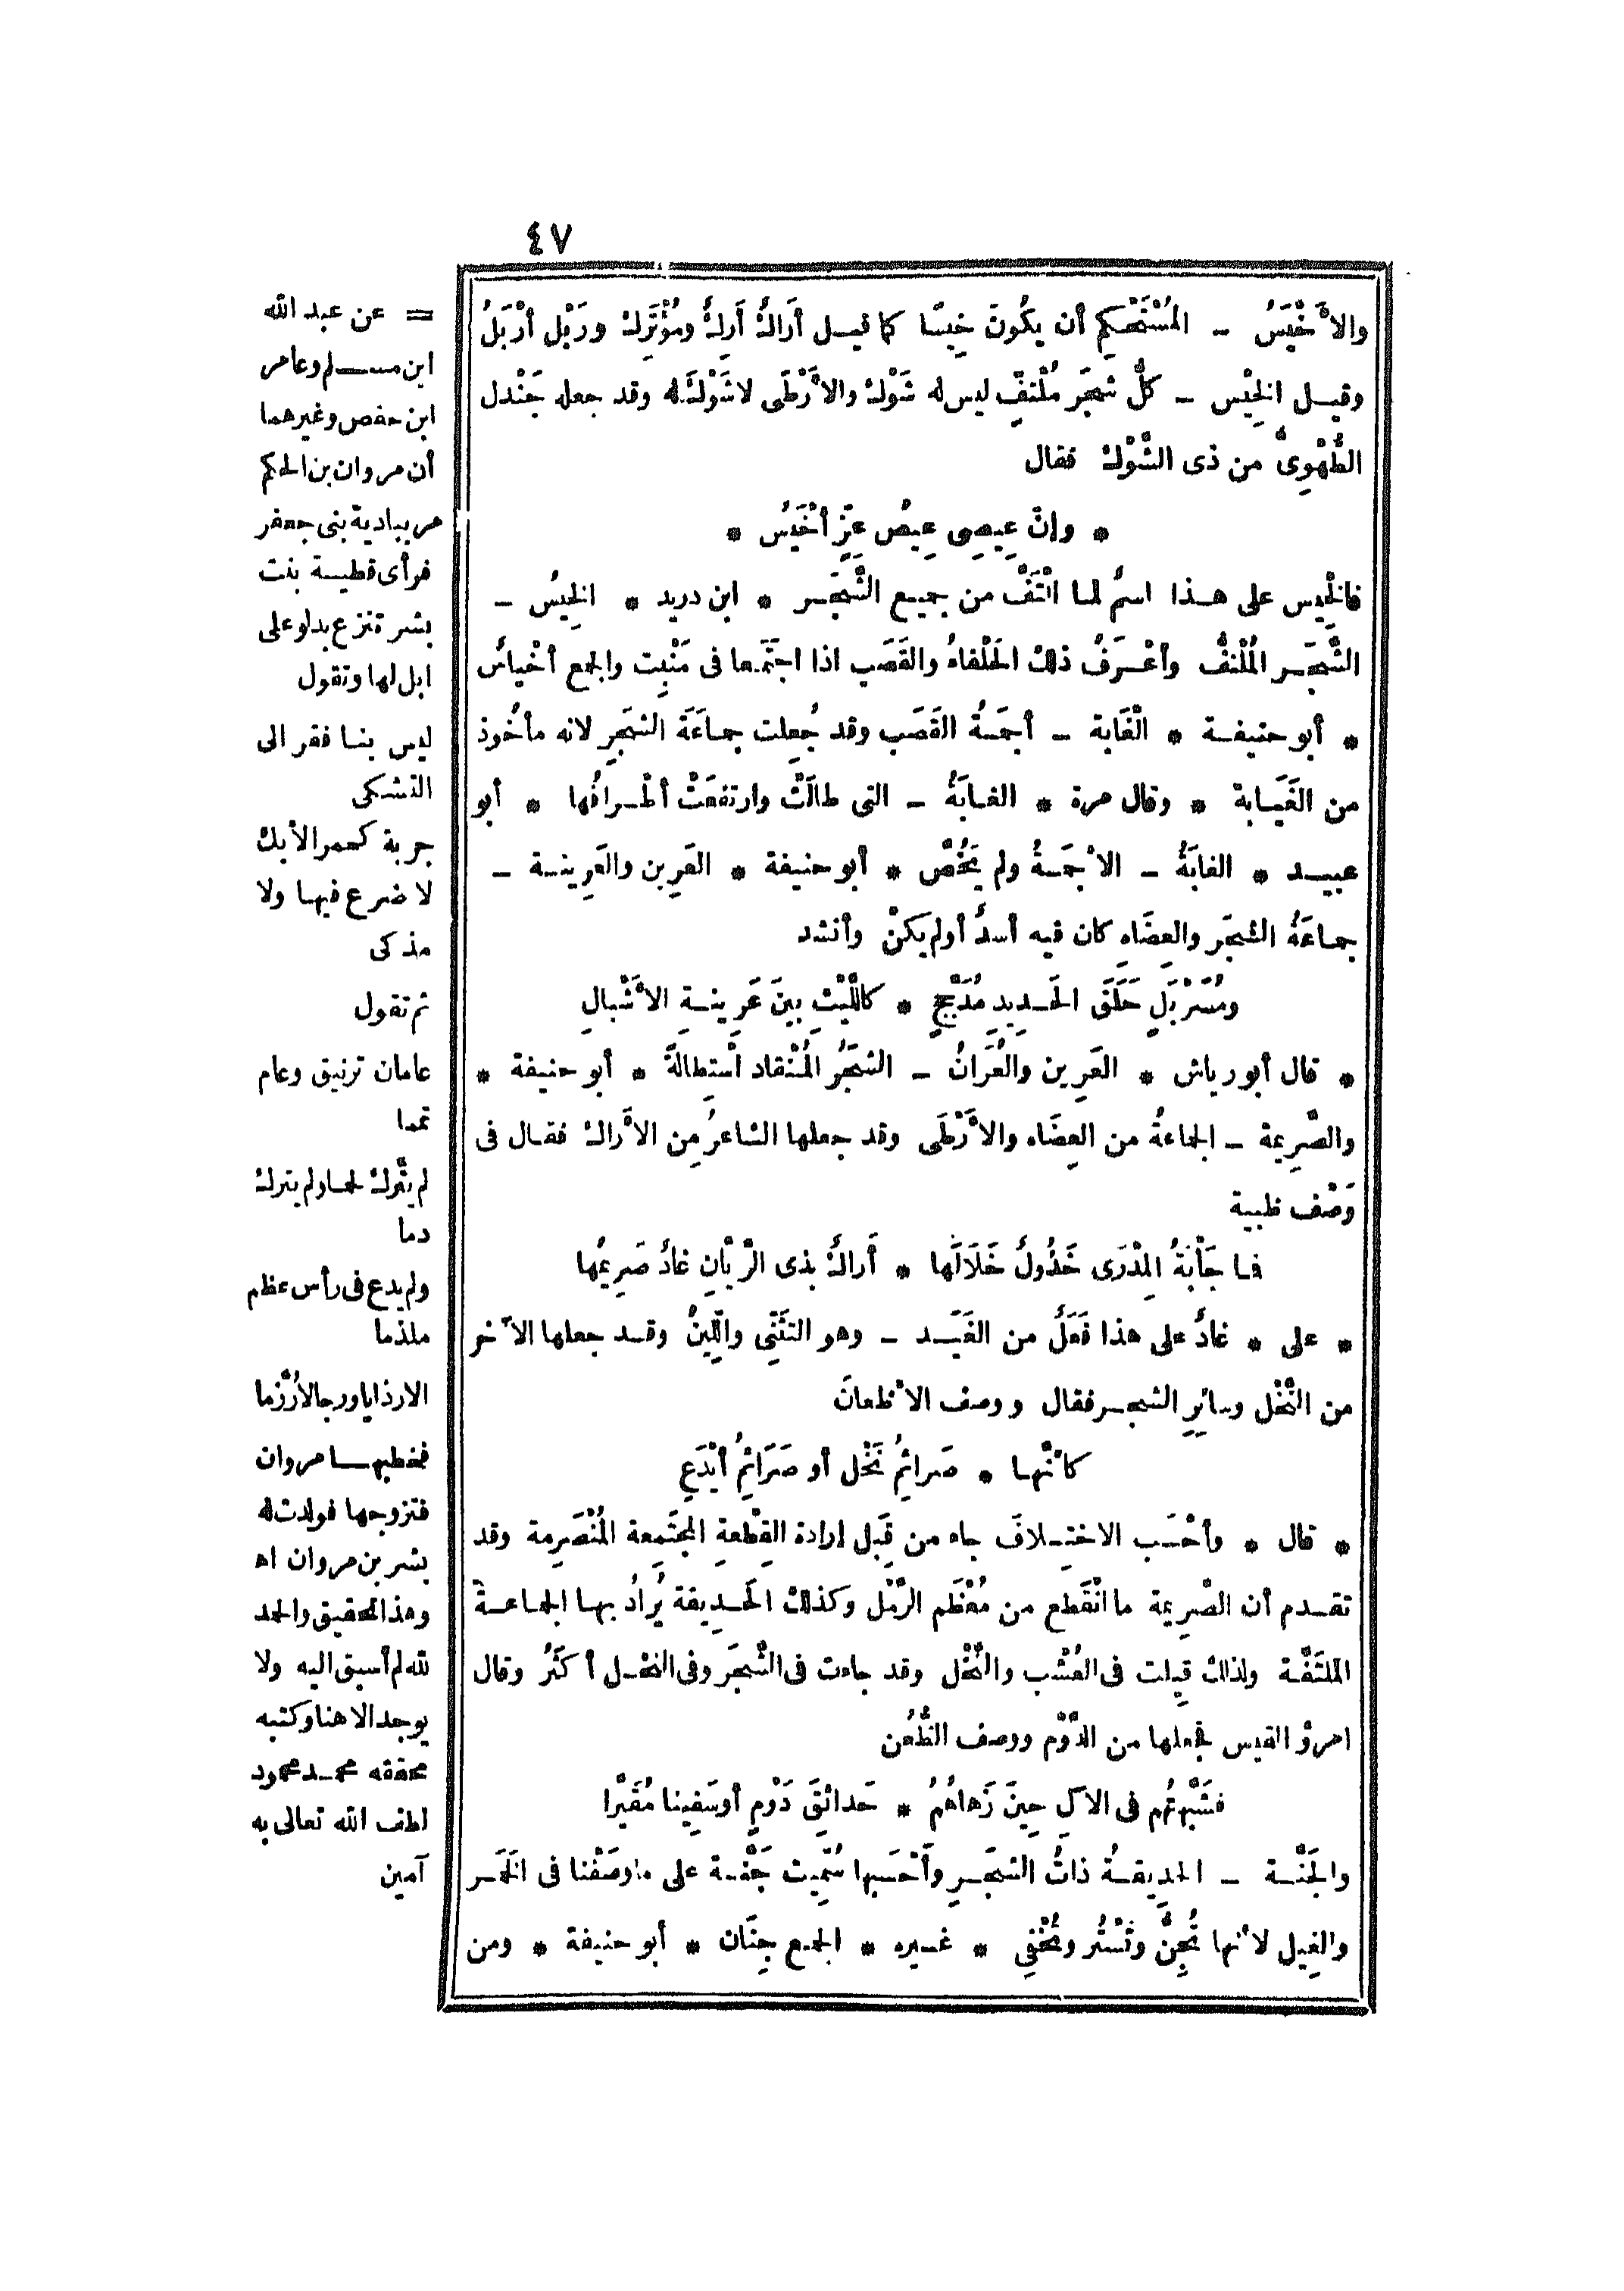 ٤٧
والأَخْيَسُ - المُسْتَحْكِم أن يكُونَ خِيسًا كما قيـل أَرَاكٌ أَرِكٌ ومُؤْتَرِك ورَبْل أَرْبَلُ
وقيـل الخِيْس - كلُّ شجَر مُلْتفٍّ ليس له شَوْك والأَرْطَى لا شَوْكَ له وقد جعله جَنْدل
الطُّهَوِىُّ من ذى الشَّوْك فقال
* وإنَّ عِيصِى عِيصُ عِزٍّ أَخْيَسُ *
فالخِيس على هـذا اسمٌ لما الْتَفَّ من جميـع الشَّجَـر * ابن دريد * الخِيسُ -
الشَّجَـر المُلْتفُّ وأعْـرَفُ ذلك الحَلْفاءُ والقَصَب اذا اجتَمَعا فى مَنْبِت والجمع أَخْياسٌ
* أبو حنيفـة * الْغَابة - أجَمَـةُ القَصَب وقد جُعِلت جماعَةَ الشجَرِ لانه مأخُوذ
من الغَيَـابة * وقال مرة * الغـابَةُ - التى طالَتْ وارتفعَتْ أطْـرافُها * أبو
عبيـد * الغابَةُ - الأجَمَـةُ ولم يَخُصَّ * أبو حنيفة * العَرِين والعَرِينـة -
جماعَةُ الشجَر والعِضَاهِ كان فيه أسدٌ أولم يكنْ وأنشد
ومُسَرْبَلٍ حَلَقَ الحَـديدِ مُدَجَّجٍ * كاللَّيْثِ بينَ عَرِينـةِ الأَشْبالِ
* قال أبو رياش * العَرِين والعُرَانُ - الشجَرُ المُنْقاد اسْتِطالةً * أبو حنيفة *
والصَّرِيمة - الجماعةُ من العِضَاه والأَرْطَى وقد جعلها الشاعرُ مِن الأَراك فقال فى
وَصْف ظبية
فـا جَأْبةُ المِدْرَى خَذُولٌ خَلَالَها * أَراكٌ بذى الرَّيَّانِ غادٌ صَرِيمُها
* على * غادٌ على هذا فَعَلٌ من الغَيَـد - وهو التثَنِّى واللِّينُ وقـد جعلها الآخر
من النَّخْل وسائِرِ الشجـر فقال ووصف الأظعانَ
كأنَّهـا * صَرائمُ نَخْل أو صَرَائِمُ أَيْدَعِ
* قال * وأحْسَب الاختـلافَ جاء من قِبَل إرادة القِطْعةِ المجتَمِعة المُنْصَرِمة وقد
تقـدم أن الصَّرِيمة ما انْقَطع من مُعْظَم الرَّمْل وكذلك الحَـدِيقة يُرادُ بهـا الجماعـةُ
المُلْتَفَّـة ولذلك قِيلت فى العُشْب والنَّخْل وقد جاءت فى الشَّجَر وفى النخـل أكثَرُ وقال
امرؤ القيس فجعلها من الدَّوْم ووصف الظُّعُن
فشَبَّهتُهم فى الآلِ حِينَ زَهاهُمُ * حَدائقَ دَوْمٍ أوسَفِينا مُقَيَّرا
والجَنَّـة - الحدِيقـةُ ذاتُ الشجَـرِ وأَحْسَبها سُمِّيت جَنَّـة على ما وصَفْنا فى الخَمَـر
والغِيل لأنها تُجِنُّ وتَسْتُر وتُخْفِى * غـيره * الجمع جِنَان * أبو حنيفة * ومن
= عن عبد الله
ابن مسـلم وعامر
ابن حفص وغيرهما
أن مروان بن الحكم
مر ببادية بنى جعفر
فرأى قطيـة بنت
بشر تنزع بدلو على
ابل لها وتقول
ليس بنـا فقر الى
التشكى
جربة كحمر الأبك
لا ضرع فيهـا ولا
مذكى
ثم تقول
عامان ترنيق وعام
تمما
لم يتَّرك لحما ولم يترك
دما
ولم يدع فى رأس عظم
ملدما
الا رذايا ورجالا رُزَّما
فخطبهـا مروان
فتزوجها فولدت له
بشر بن مروان اه
وهذا التحقيق والحمد
لله لم أسبق اليه ولا
يوجد الا هنا وكتبه
محققه محمـد محمود
لطف الله تعالى به
آمين